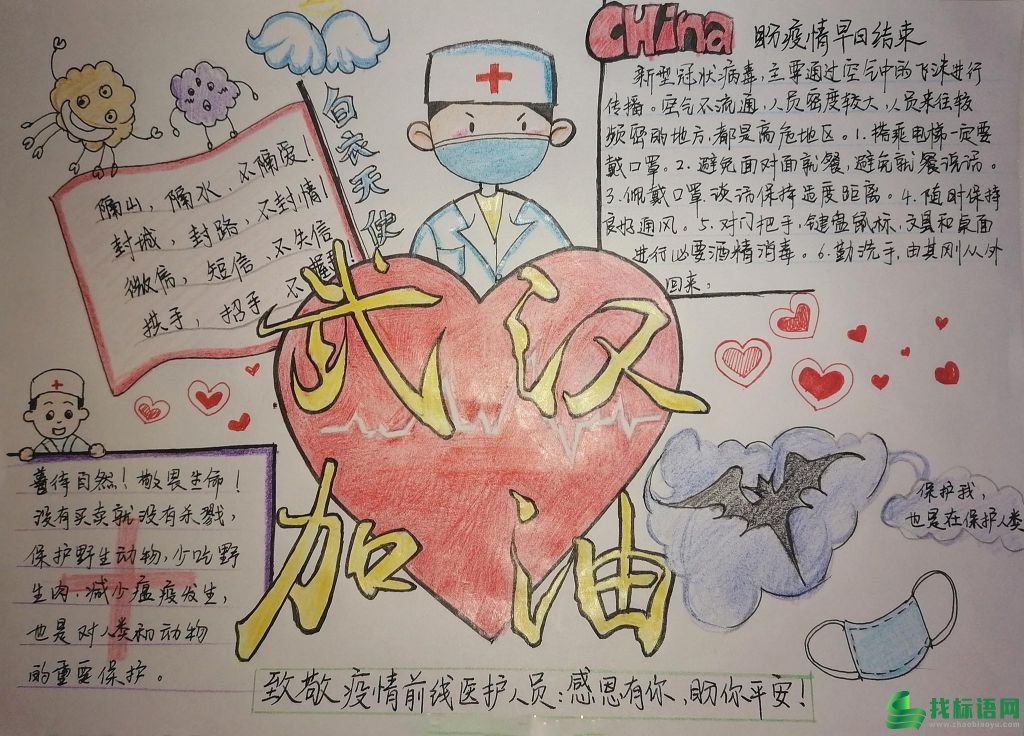 China
盼疫情早日结束
新型冠状病毒,主要通过空气中的飞沫进行
传播。空气不流通,人员密度较大,人员来往较
频密的地方,都是高危地区。1.搭乘电梯一定要
戴口罩。2.避免面对面就餐,避免就餐说话。
3.佩戴口罩谈话保持适度距离。4.随时保持
良好通风。5.对门把手,键盘鼠标,文具和桌面
进行必要酒精消毒。6.勤洗手,由其刚从外
回来,
白衣天使
隔山,隔水,不隔爱!
封城,封路,不封情!
微信,短信、不失信
拱手,招手、不握手!
武汉
加油
善待自然!敬畏生命!
没有买卖就没有杀戮,
保护野生动物,少吃野
生肉,减少瘟疫发生,
也是对人类和动物
的重要保护。
保护我,
也是在保护人类
致敬疫情前线医护人员:感恩有你、盼你平安!
找标语网
www.zhaobiaoyu.com